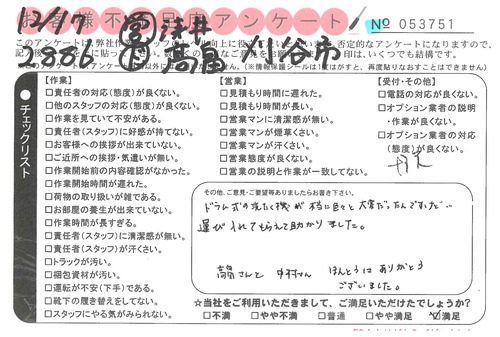 お客様不満足度アンケート
№ 053751
12/17
2886
営 浅井
高畠
刈谷市
チェックリスト
【作業】
□責任者の対応(態度)が良くない。
□他のスタッフの対応(態度)が良くない。
□作業を見ていて不安がある。
□責任者(スタッフ)に好感が持てない。
□お客様への挨拶が出来ていない。
□ご近所への挨拶・気遣いが無い。
□作業開始前の内容確認がなかった。
□作業開始時間が遅れた。
□荷物の取り扱いが雑である。
□お部屋の養生が出来ていない。
□作業時間が長すぎる。
□責任者(スタッフ)に清潔感が無い。
□責任者(スタッフ)が汗くさい。
□トラックが汚い。
□梱包資材が汚い。
□運転が不安(下手)である。
□靴下の履き替えをしてない。
□スタッフにやる気がみられない。
【営業】
□見積もり時間に遅れた。
□見積もり時間が長い。
□営業マンに清潔感が無い。
□営業マンが煙草くさい。
□営業マンが汗くさい。
□営業態度が良くない。
□営業の説明と作業が一致してない。
【受付・その他】
□電話の対応が良くない。
□オプション業者の説明
・作業が良くない。
□オプション業者の対応
(態度)が良くない。
その他、ご意見・ご要望等ありましたらお書き下さい。
ドラム式の洗たく機が本当に色々と大変だったんですが…
運び入れてもらえて助かりました。
高畠さんと 中村さん ほんとうにありがとう
ございました。
☆当社をご利用いただきまして、ご満足いただけたでしょうか?
□不満 □やや不満 □普通 □やや満足 ☑満足